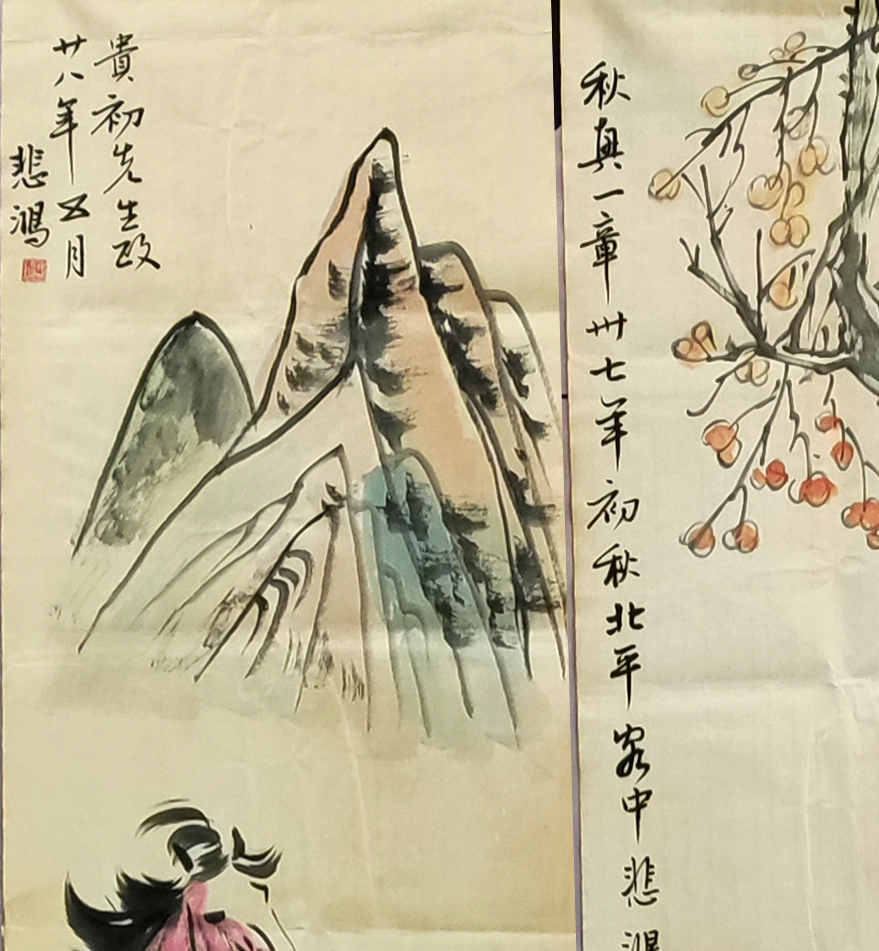 貴初先生政
廿八年五月
悲鴻
秋真一章卅七年初秋北平客中悲鴻